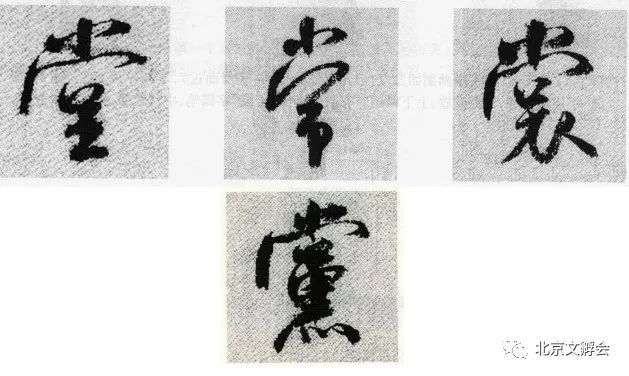 堂 常 裳
黨
北京文孚会